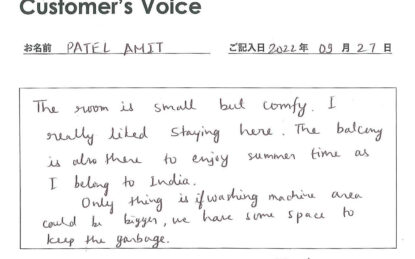 Customer's Voice
お名前 PATEL AMIT ご記入日 2022 年 09 月 27 日
The room is small but comfy. I
really liked staying here. The balcony
is also there to enjoy summer time as
I belong to India.
Only thing is if washing machine area
could be bigger, we have some space to
keep the garbage.